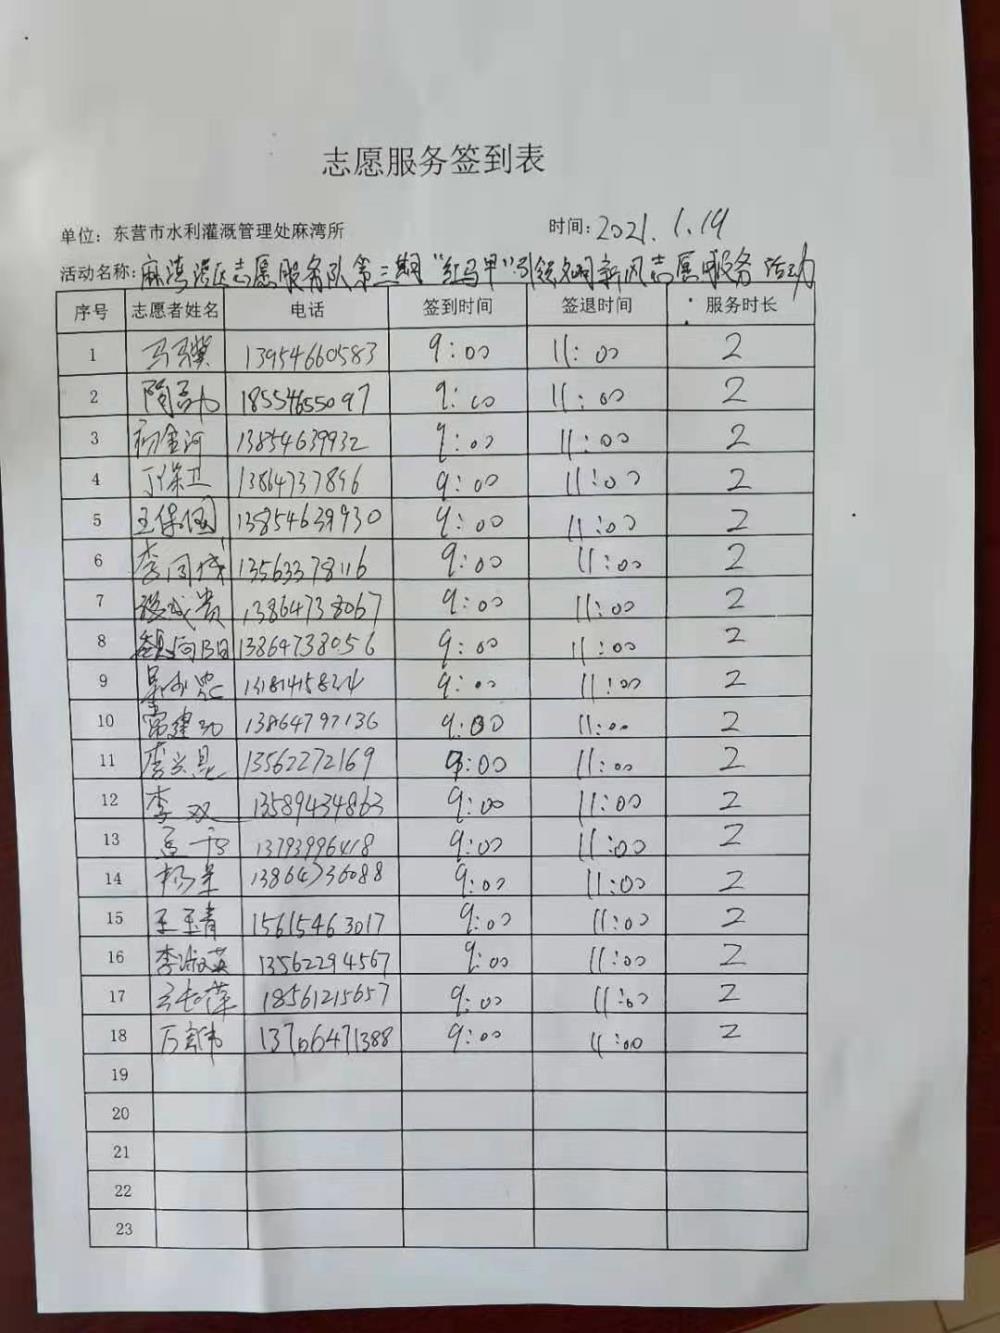 志愿服务签到表
单位：东营市水利灌溉管理处麻湾所 时间：2021.1.19
活动名称：麻湾灌区志愿服务队第三期"红马甲"引领文明新风志愿服务活动
序号 志愿者姓名 电话 签到时间 签退时间 服务时长
1 13954660583 9:00 11:00 2
2 18554655097 9:00 11:00 2
3 13854639932 9:00 11:00 2
4 丁保卫 13864737896 9:00 11:00 2
5 王保国 13854639930 9:00 11:00 2
6 李同成 13563378116 9:00 11:00 2
7 13864738067 9:00 11:00 2
8 13864738056 9:00 11:00 2
9 9:00 11:00 2
10 13864797136 9:00 11:00 2
11 13562272169 9:00 11:00 2
12 李双 13589434863 9:00 11:00 2
13 13793996418 9:00 11:00 2
14 13864736088 9:00 11:00 2
15 王玉青 15615463017 9:00 11:00 2
16 李淑英 13562294567 9:00 11:00 2
17 18561215657 9:00 11:00 2
18 13706471388 9:00 11:00 2
19
20
21
22
23